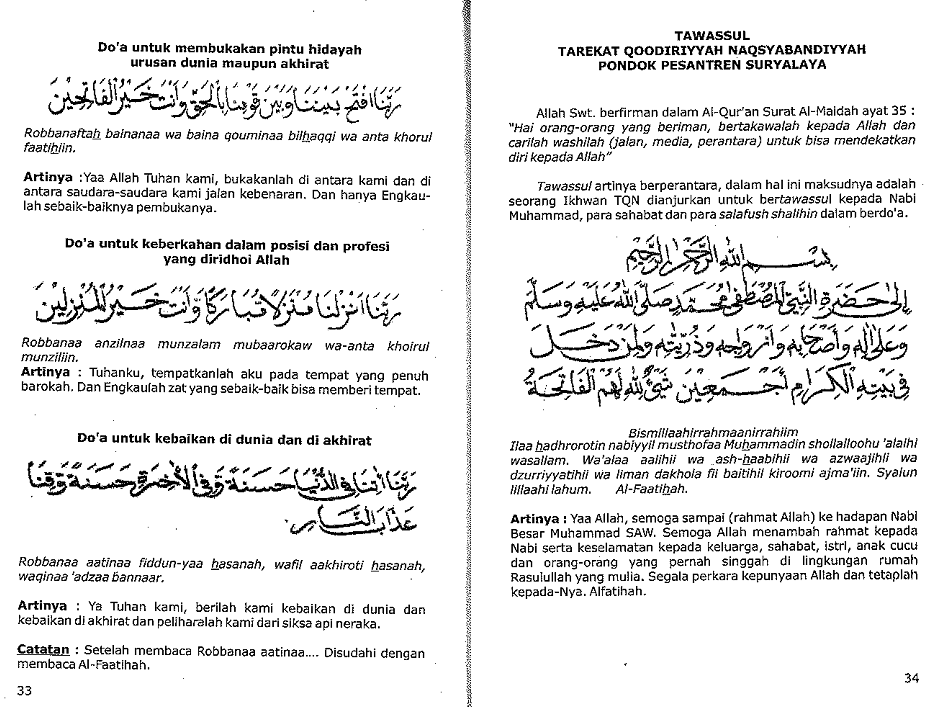 Do'a untuk membukakan pintu hidayah
urusan dunia maupun akhirat
رَبَّنَا افْتَحْ بَيْنَنَا وَبَيْنَ قَوْمِنَا بِالْحَقِّ وَأَنْتَ خَيْرُ الْفَاتِحِيْنَ
Robbanaftah bainanaa wa baina qouminaa bilhaqqi wa anta khorul
faatihiin.
Artinya :Yaa Allah Tuhan kami, bukakanlah di antara kami dan di
antara saudara-saudara kami jalan kebenaran. Dan hanya Engkau-
lah sebaik-baiknya pembukanya.
Do'a untuk keberkahan dalam posisi dan profesi
yang diridhoi Allah
رَبَّنَا أَنْزِلْنَا مُنْزَلًا مُبَارَكًا وَأَنْتَ خَيْرُ الْمُنْزِلِيْنَ
Robbanaa anzilnaa munzalam mubaarokaw wa-anta khoirul
munziliin.
Artinya : Tuhanku, tempatkanlah aku pada tempat yang penuh
barokah. Dan Engkaulah zat yang sebaik-baik bisa memberi tempat.
Do'a untuk kebaikan di dunia dan di akhirat
رَبَّنَا آتِنَا فِي الدُّنْيَا حَسَنَةً وَفِي الْآخِرَةِ حَسَنَةً وَقِنَا
عَذَابَ النَّارِ.
Robbanaa aatinaa fiddun-yaa hasanah, wafil aakhiroti hasanah,
waqinaa 'adzaa bannaar.
Artinya : Ya Tuhan kami, berilah kami kebaikan di dunia dan
kebaikan di akhirat dan peliharalah kami dari siksa api neraka.
Catatan : Setelah membaca Robbanaa aatinaa.... Disudahi dengan
membaca Al-Faatihah.
33
TAWASSUL
TAREKAT QOODIRIYYAH NAQSYABANDIYYAH
PONDOK PESANTREN SURYALAYA
Allah Swt. berfirman dalam Al-Qur'an Surat Al-Maidah ayat 35 :
"Hai orang-orang yang beriman, bertakawalah kepada Allah dan
carilah washilah (jalan, media, perantara) untuk bisa mendekatkan
diri kepada Allah"
Tawassul artinya berperantara, dalam hal ini maksudnya adalah
seorang Ikhwan TQN dianjurkan untuk bertawassul kepada Nabi
Muhammad, para sahabat dan para salafush shalihin dalam berdo'a.
بِسْمِ اللهِ الرَّحْمٰنِ الرَّحِيْمِ
إِلَى حَضْرَةِ النَّبِيِّ الْمُصْطَفَى مُحَمَّدٍ صَلَّى اللهُ عَلَيْهِ وَسَلَّمَ
وَعَلَى آلِهِ وَأَصْحَابِهِ وَأَزْوَاجِهِ وَذُرِّيَّتِهِ وَلِمَنْ دَخَلَ
فِي بَيْتِهِ الْكِرَامِ أَجْمَعِيْنَ شَيْئٌ لِلّٰهِ لَهُمُ الْفَاتِحَةُ
Bismillaahirrahmaanirrahiim
Ilaa hadhrorotin nabiyyil musthofaa Muhammadin shollalloohu 'alaihi
wasallam. Wa'alaa aalihii wa ash-haabihii wa azwaajihii wa
dzurriyyatihii wa liman dakhola fil baitihil kiroomi ajma'iin. Syaiun
lillaahi lahum. Al-Faatihah.
Artinya : Yaa Allah, semoga sampai (rahmat Allah) ke hadapan Nabi
Besar Muhammad SAW. Semoga Allah menambah rahmat kepada
Nabi serta keselamatan kepada keluarga, sahabat, istri, anak cucu
dan orang-orang yang pernah singgah di lingkungan rumah
Rasulullah yang mulia. Segala perkara kepunyaan Allah dan tetaplah
kepada-Nya. Alfatihah.
34